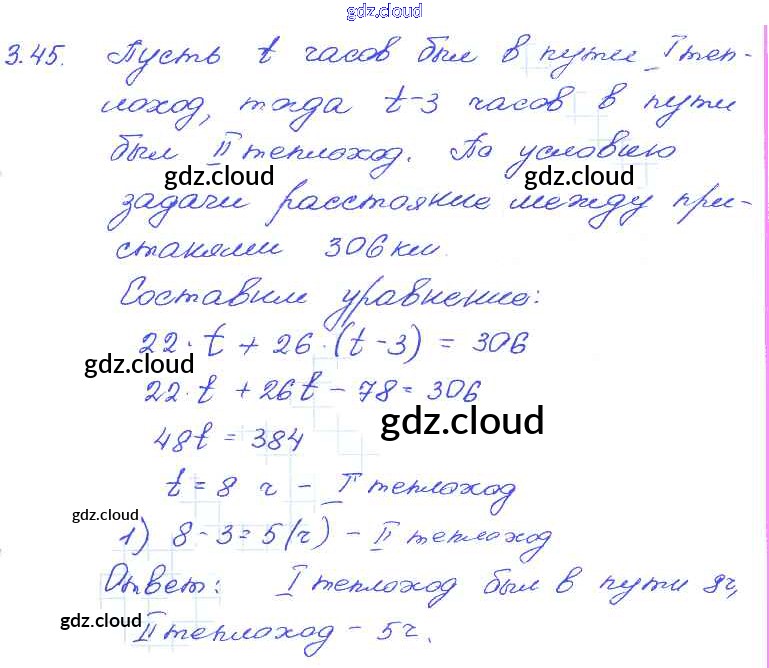 gdz.cloud
3.45. Пусть t часов был в пути I теп-
лоход, тогда t-3 часов в пути
был II теплоход. По условию
gdz.cloud gdz.cloud
задачи расстояние между при-
станями 306 км.
Составим уравнение:
22·t + 26·(t-3) = 306
gdz.cloud
22·t + 26t - 78 = 306
gdz.cloud
48t = 384
t = 8 ч - I теплоход
gdz.cloud
1) 8-3=5(ч) - II теплоход
Ответ: I теплоход был в пути 8ч,
gdz.cloud
II теплоход - 5ч.